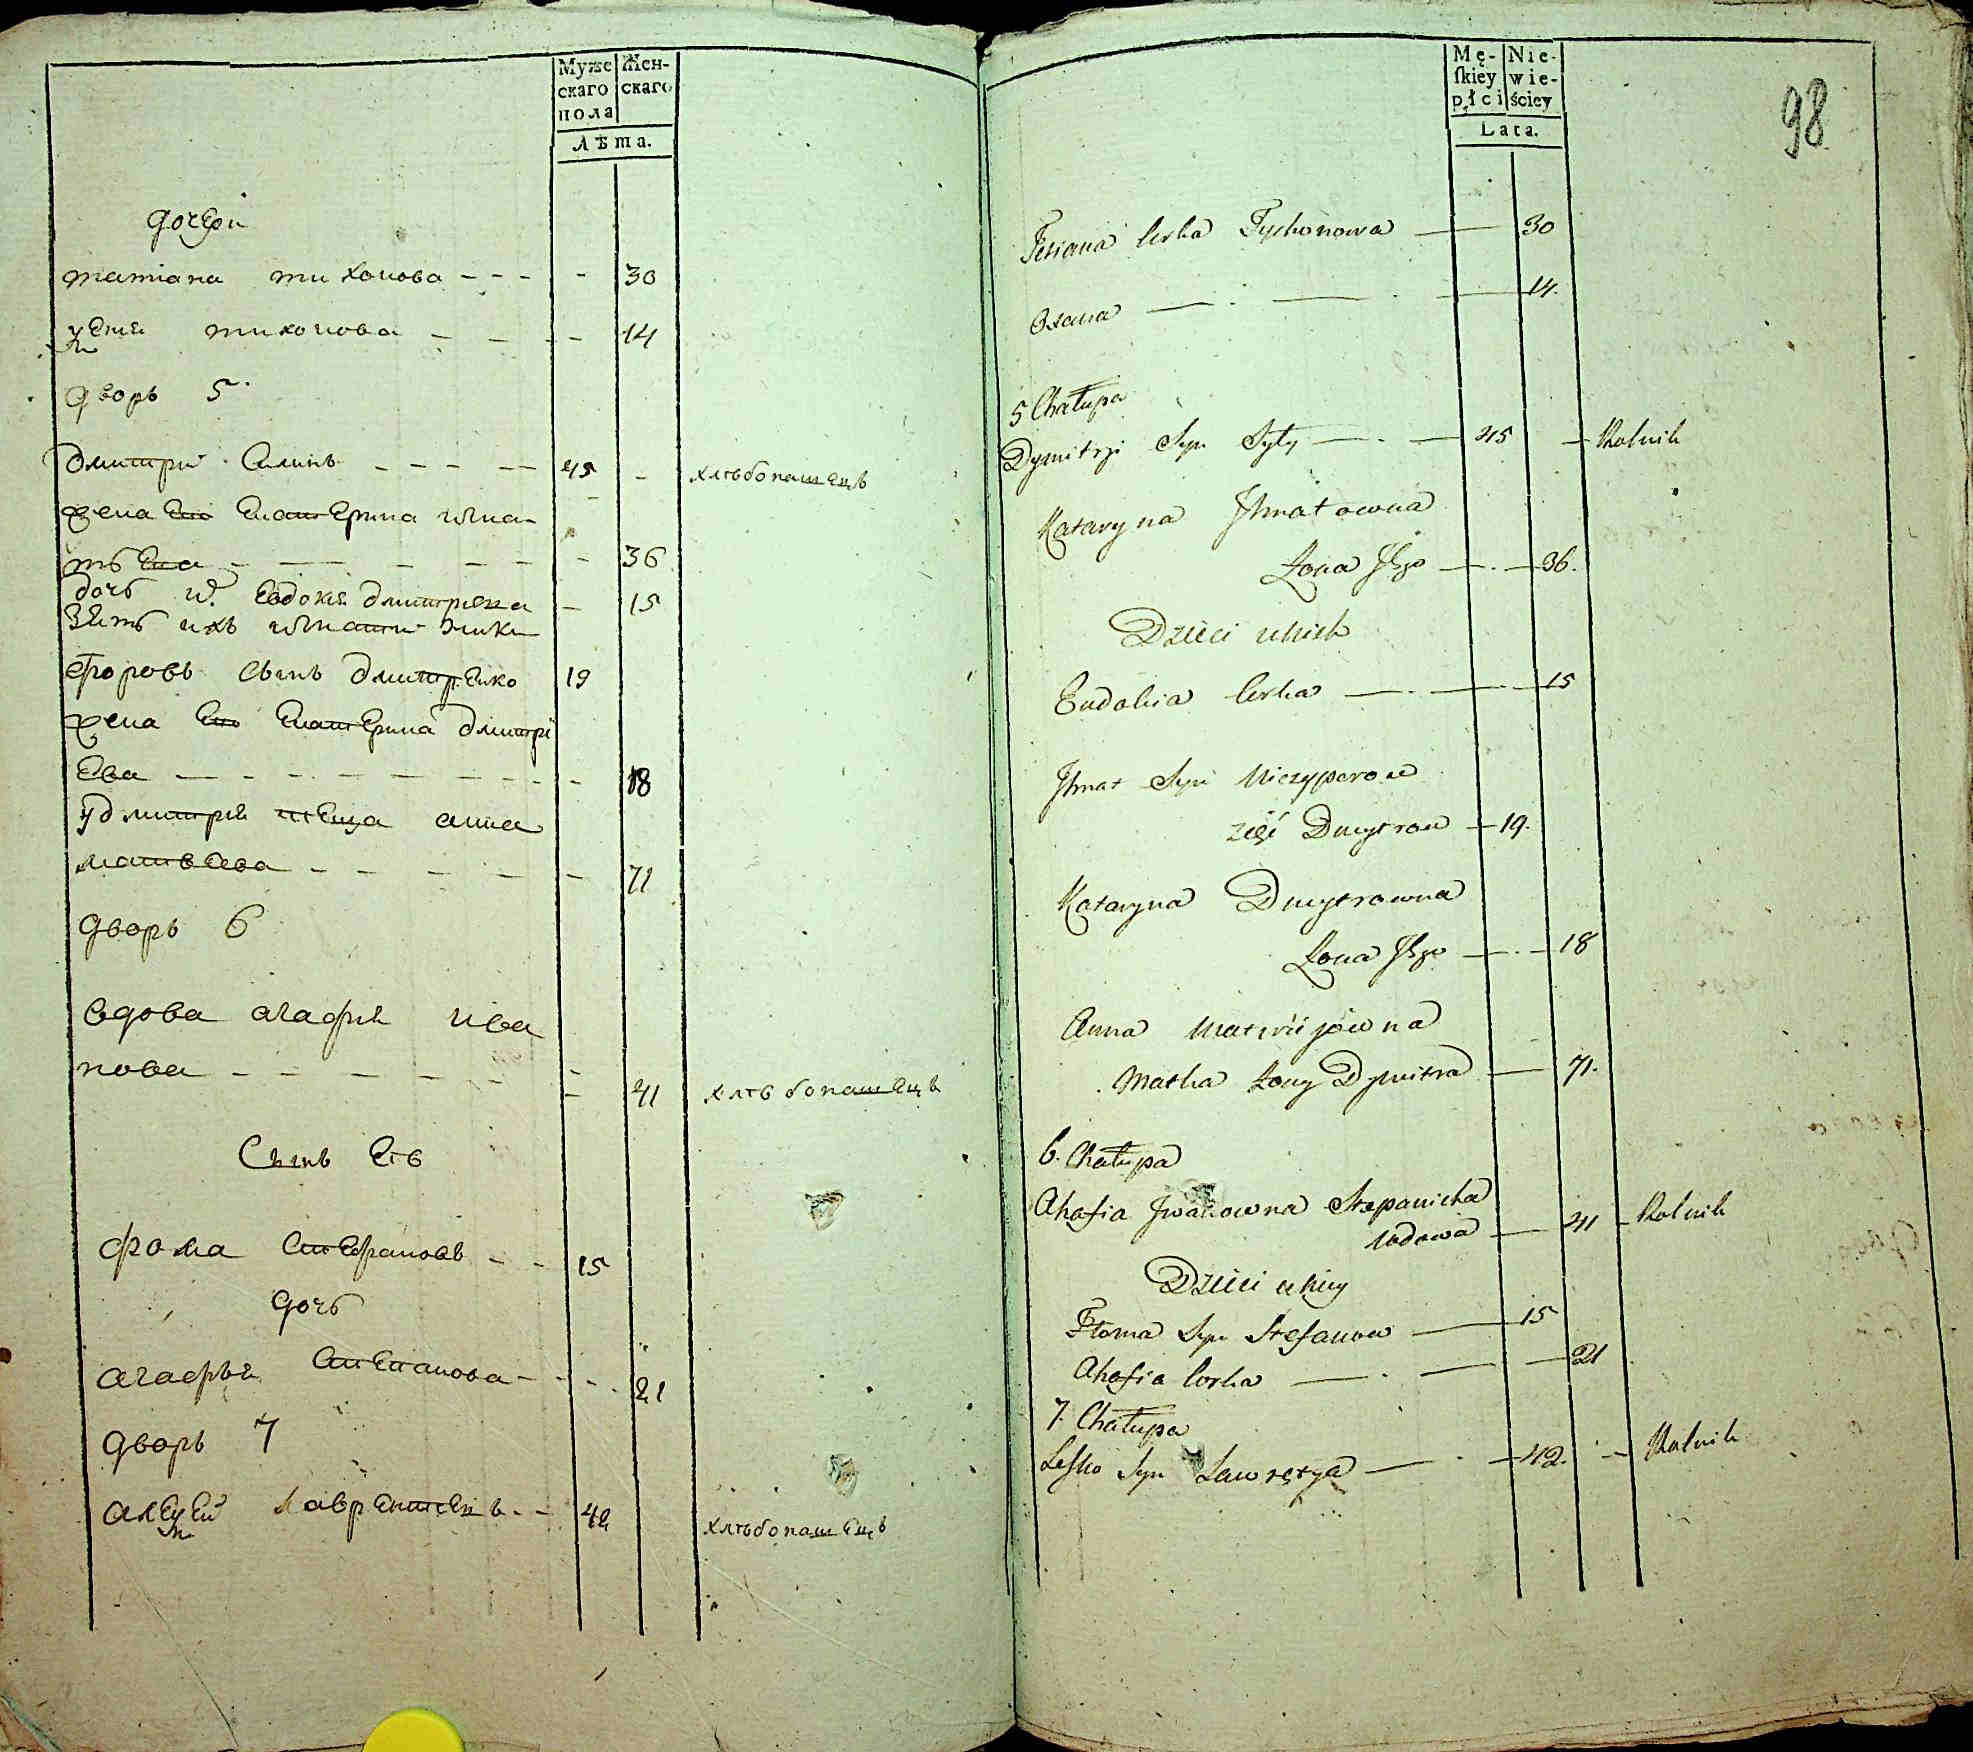 Муже
скаго
пола
Жен-
скаго
Лѣта.
дочери
татiана тихонова - - - - 30
тихонова - - - 14
дворъ 5
дмитри Силинъ - - - - 45 - хлѣбопашецъ
жена Его Екатерина игна-
тьева - - - - - - 36
дочь их Евдокия дмитриева - 15
Зять ихъ игнати ники
форовъ сынъ дмитренко 19
жена Его Екатерина дмитрi
Ева - - - - - - - 18
у дмитрия тЕща анна
матвеева - - - - - - 71
дворъ 6
вдова агафия ива
нова - - - - - - - 41 хлѣбопашецъ
Сынъ Ев
фома Стефановъ - - 15
дочь
агафья Степанова - - - 21
дворъ 7
алеѯей лаврентиевъ - - 42 хлѣбопашецъ
Mę-
skiey
płci
Nie-
wie-
ściey
Lata.
98
Tetiana Corka Tychonowa — 30
Oxana — . — — 14.
5 Chałupa
Dymitrji Syn Syły — . — 45 — Rolnik
Kataryna Ihnatowna
Żona Jego — . — 36.
Dzieci u nich
Eudokia Corka — . — . — 15
Ihnat Syn Niczyporow
zięć Dmytrow — 19.
Kataryna Dmytrowna
Żona Jego — . — 18
Anna Matwiijowna
Matka Żony Dymitra — 71.
6. Chałupa
Ahafia Iwanowna Stepanicha
Wdowa — 41 — Rolnik
Dzieci u niey
Floma Syn Stefanow — 15
Ahafia Corka — . — — 21
7. Chałupa
Lesko Syn Ławrętya — . — 42. — Rolnik